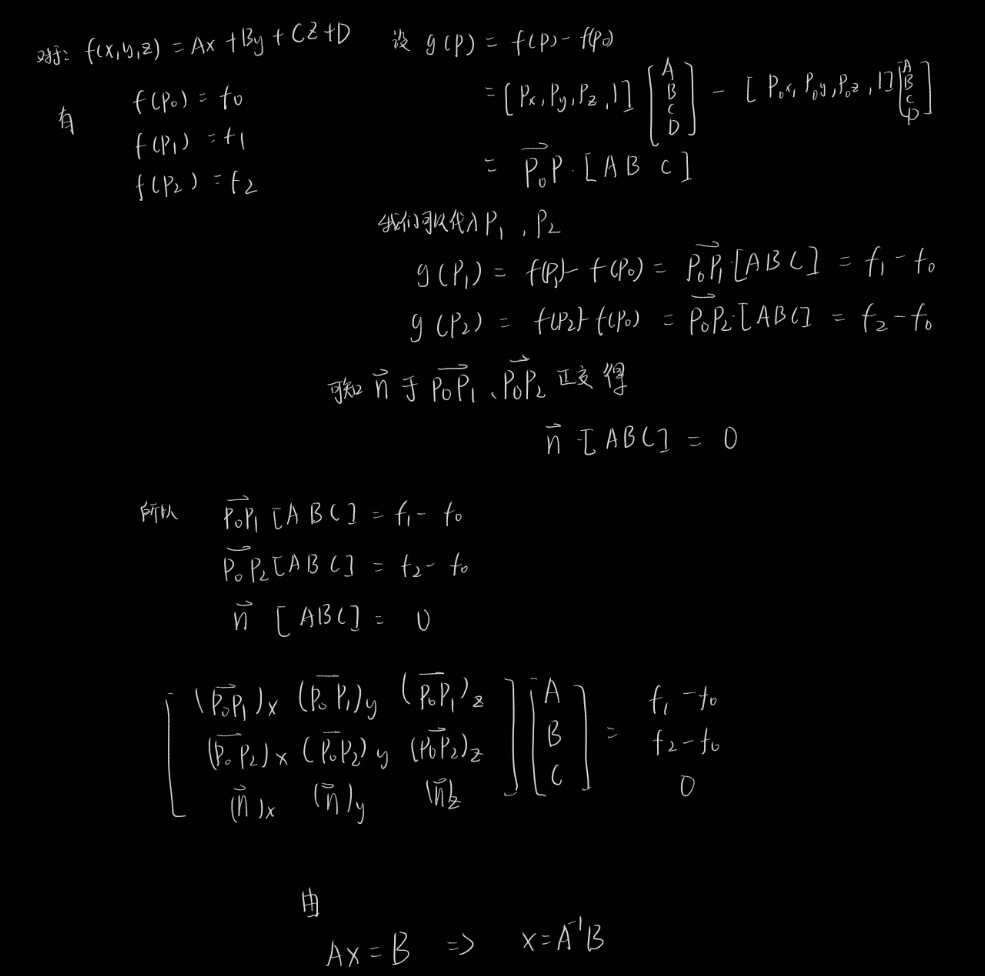 对于: f(x,y,z) = Ax + By + CZ + D
有
f(P₀) = f₀
f(P₁) = f₁
f(P₂) = f₂
设 g(P) = f(P) - f(P₀)
= [Px, Py, Pz, 1] [A B C D] - [P₀x, P₀y, P₀z, 1] [A B C D]
= P₀P⃗ · [A B C]
我们可以代入 P₁ , P₂
g(P₁) = f(P₁) - f(P₀) = P₀P₁⃗ · [A B C] = f₁ - f₀
g(P₂) = f(P₂) - f(P₀) = P₀P₂⃗ · [A B C] = f₂ - f₀
可知 n⃗ 于 P₀P₁⃗ 、P₀P₂⃗ 正交 得
n⃗ · [A B C] = 0
所以 P₀P₁⃗ [A B C] = f₁ - f₀
P₀P₂⃗ [A B C] = f₂ - f₀
n⃗ [A B C] = 0
[ (P₀P₁⃗)x (P₀P₁⃗)y (P₀P₁⃗)z ] [ A ] f₁ - f₀
[ (P₀P₂⃗)x (P₀P₂⃗)y (P₀P₂⃗)z ] [ B ] = f₂ - f₀
[ (n⃗)x (n⃗)y (n⃗)z ] [ C ] 0
由
Ax = B => x = A⁻¹B